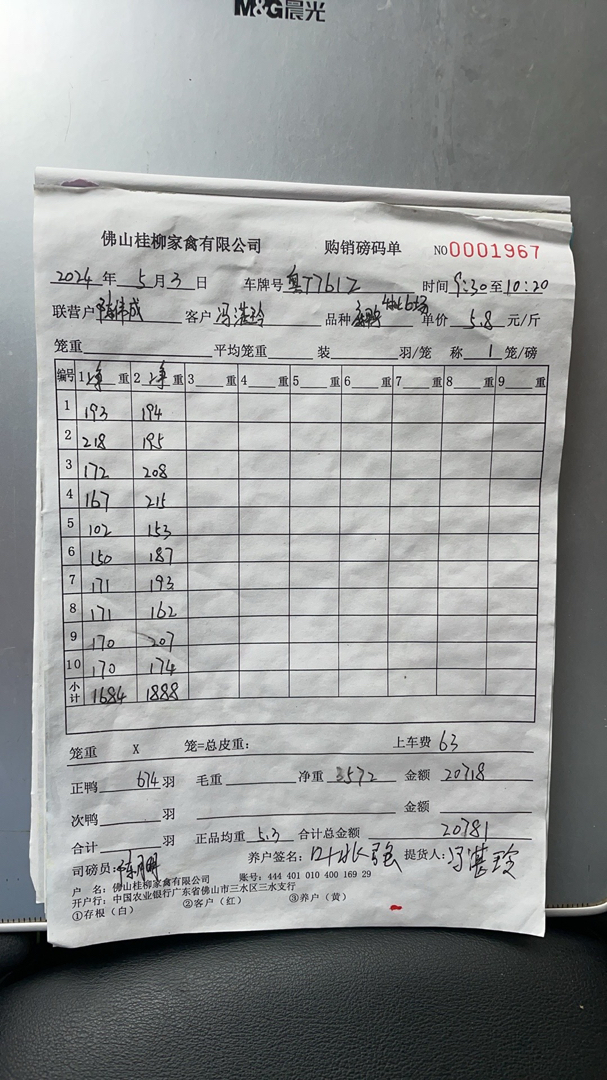 M&G晨光
佛山桂柳家禽有限公司 购销磅码单 NO0001967
2024年5月3日 车牌号 粤T761Z 时间9:30至10:20
联营户 陈伟成 客户 冯湛玲 品种 单价 5.8 元/斤
笼重 平均笼重 装 羽/笼 称 1 笼/磅
编号 1净重 2净重 3重 4重 5重 6重 7重 8重 9重
1 193 194
2 218 195
3 172 208
4 167 215
5 102 153
6 150 187
7 171 193
8 171 162
9 170 207
10 170 174
小计 1684 1888
笼重 X 笼=总皮重: 上车费 63
正鸭 674 羽 毛重 净重 3572 金额 20718
次鸭 羽 金额
合计 羽 正品均重 5.3 合计总金额 20781
司磅员: 养户签名: 提货人: 冯湛玲
户 名: 佛山桂柳家禽有限公司 账号: 444 401 010 400 169 29
开户行: 中国农业银行广东省佛山市三水区三水支行
①存根(白) ②客户(红) ③养户(黄)